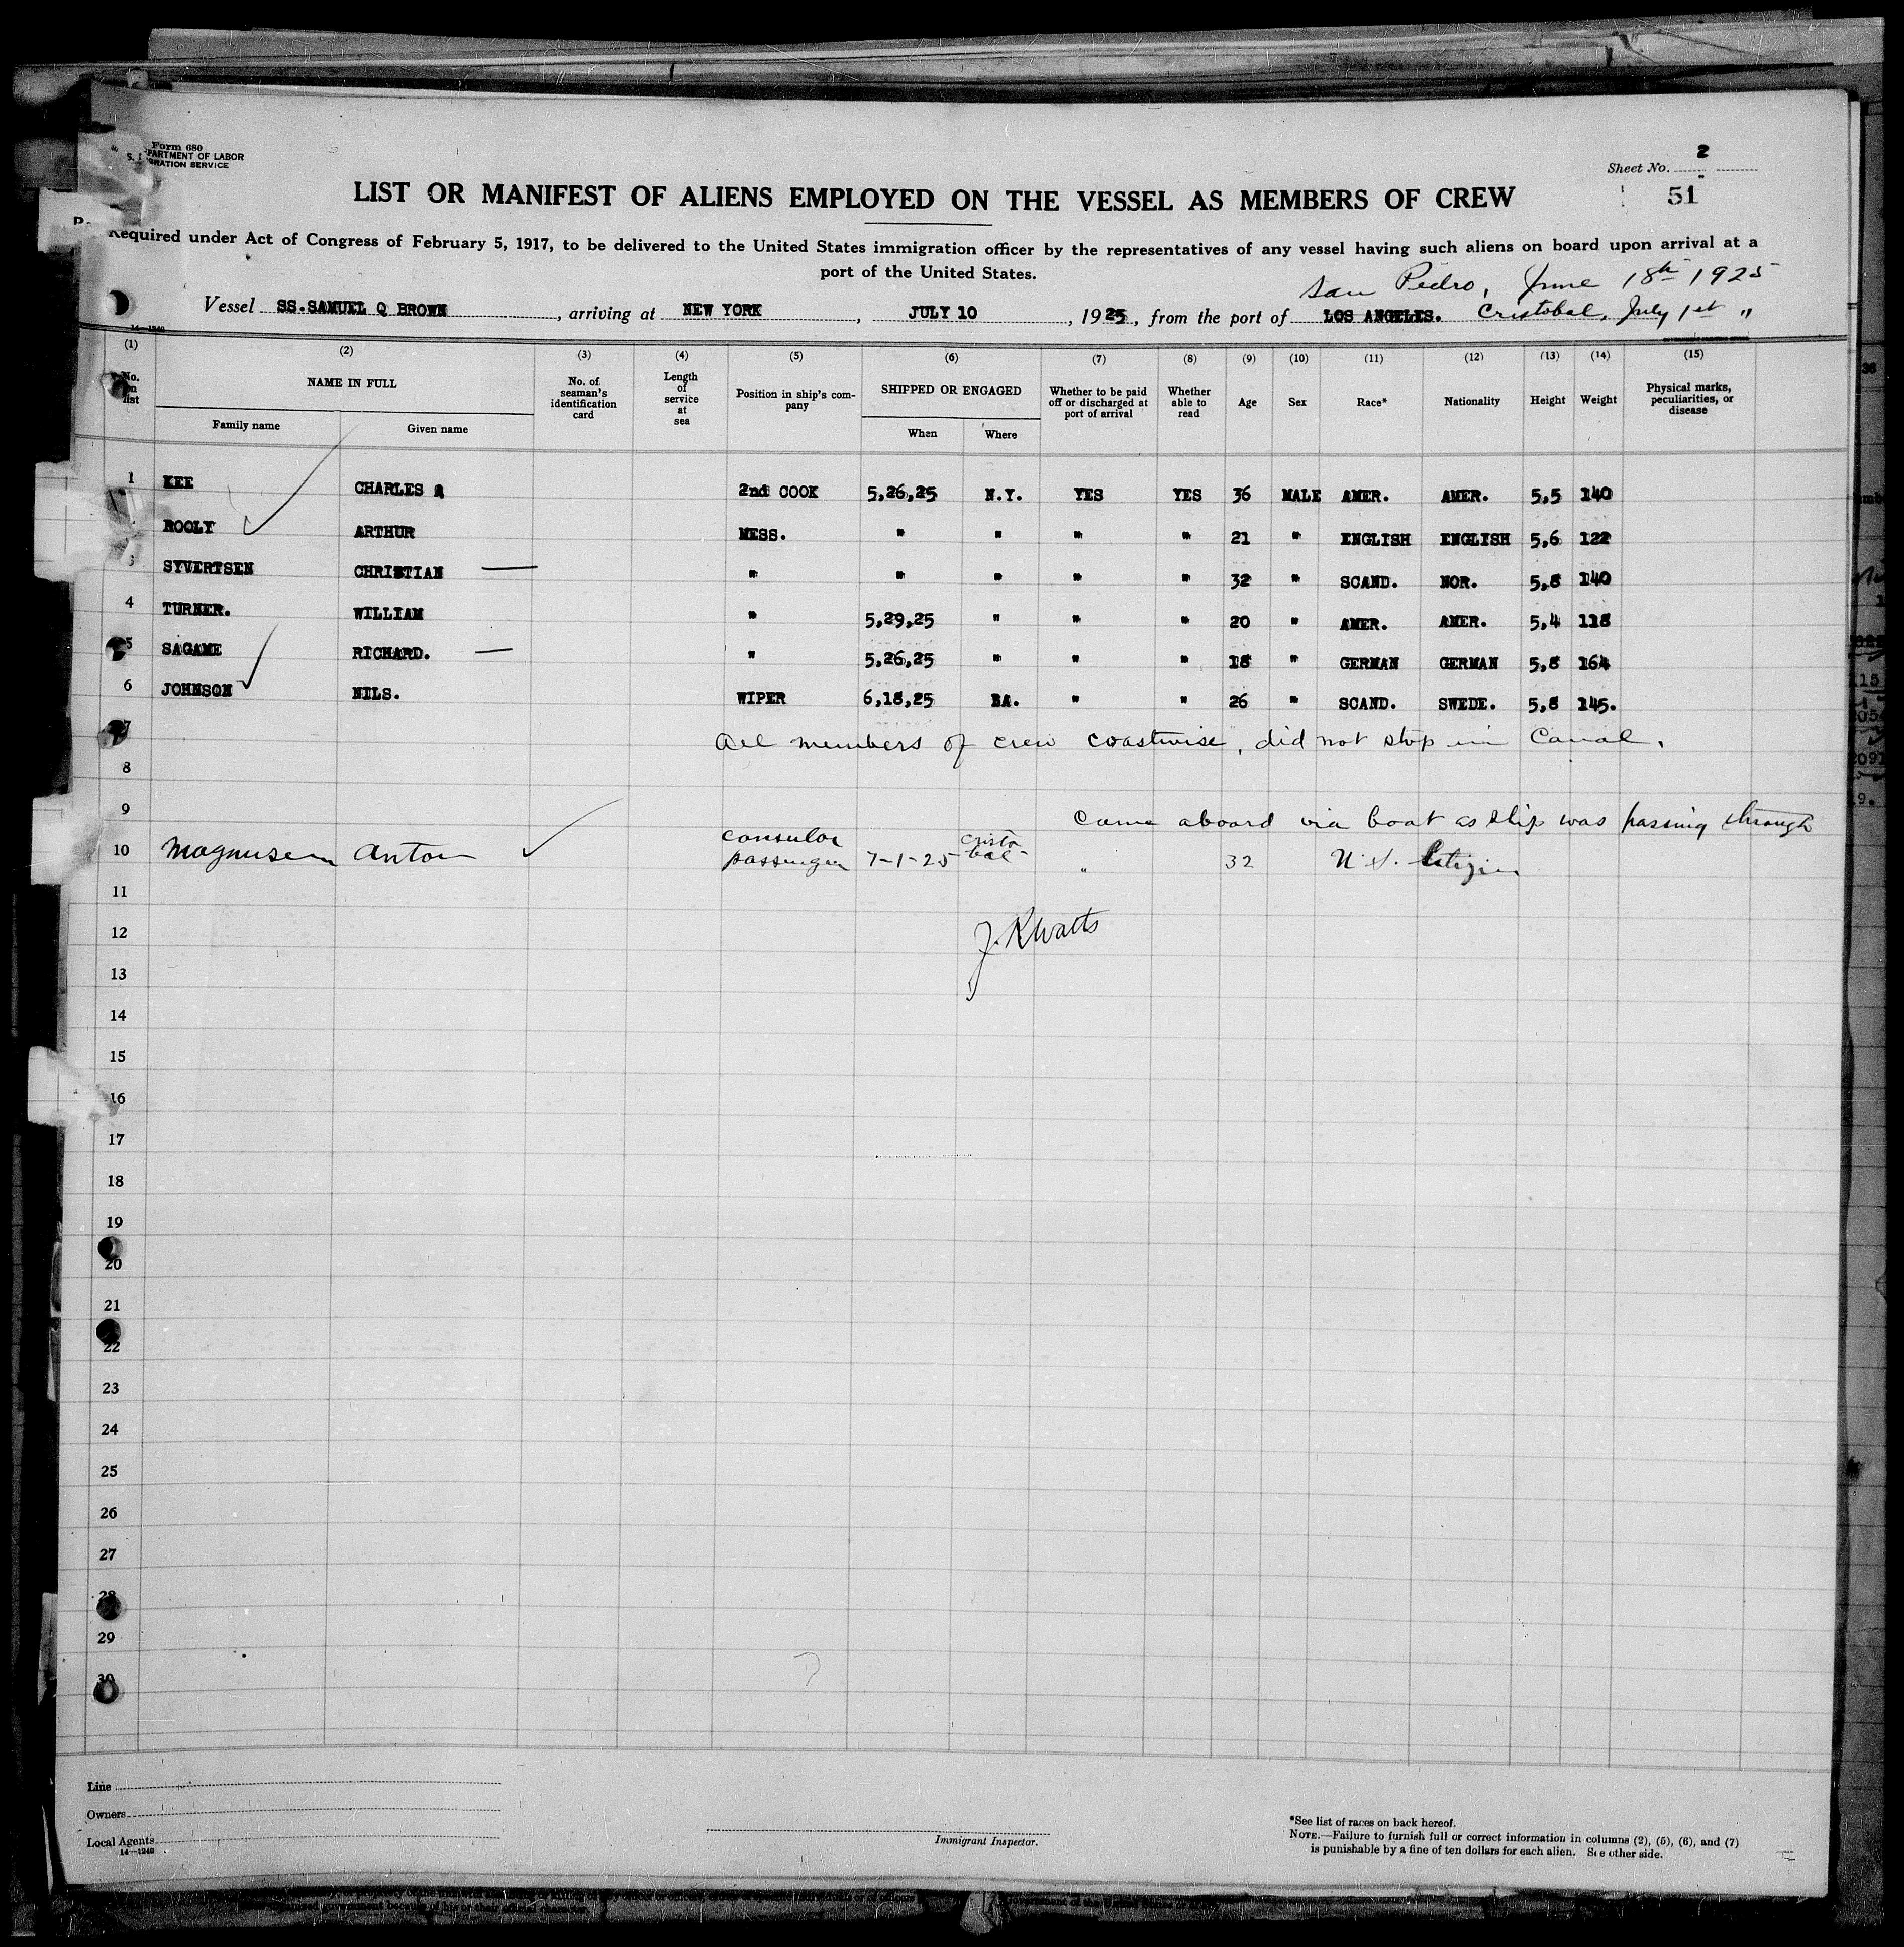 Form 680
S. DEPARTMENT OF LABOR
IMMIGRATION SERVICE
Sheet No. 2
51
LIST OR MANIFEST OF ALIENS EMPLOYED ON THE VESSEL AS MEMBERS OF CREW
Required under Act of Congress of February 5, 1917, to be delivered to the United States immigration officer by the representatives of any vessel having such aliens on board upon arrival at a
port of the United States.
San Pedro, June 18th 1925
Vessel SS.SAMUEL Q BROWN, arriving at NEW YORK, JULY 10, 1925, from the port of LOS ANGELES. Cristobal, July 1st "
14—1240
(1) (2) (3) (4) (5) (6) (7) (8) (9) (10) (11) (12) (13) (14) (15)
No. on list
NAME IN FULL
Family name
Given name
No. of seaman's identification card
Length of service at sea
Position in ship's company
SHIPPED OR ENGAGED
When
Where
Whether to be paid off or discharged at port of arrival
Whether able to read
Age
Sex
Race*
Nationality
Height
Weight
Physical marks, peculiarities, or disease
1 KEE CHARLES 2nd COOK 5,26,25 N.Y. YES YES 36 MALE AMER. AMER. 5,5 140
ROOLY ARTHUR MESS. " " " " 21 " ENGLISH ENGLISH 5,6 122
3 SYVERTSEN CHRISTIAN — " " " " " 32 " SCAND. NOR. 5,8 140
4 TURNER. WILLIAM " 5,29,25 " " " 20 " AMER. AMER. 5,4 118
5 SAGAME RICHARD. — " 5,26,25 " " " 18 " GERMAN GERMAN 5,8 164
6 JOHNSON NILS. WIPER 6,18,25 BA. " " 26 " SCAND. SWEDE. 5,8 145.
7 All members of crew coastwise, did not stop in Canal.
8
9 Came aboard via boat as ship was passing through
10 Magnusen Anton consular passenger 7-1-25 Cristobal " 32 U.S. Citizen
11
12 J. R. Watts
13
14
15
16
17
18
19
20
21
22
23
24
25
26
27
28
29
30
Line
Owners
Local Agents
14—1240
Immigrant Inspector.
*See list of races on back hereof.
NOTE.—Failure to furnish full or correct information in columns (2), (5), (6), and (7)
is punishable by a fine of ten dollars for each alien. See other side.